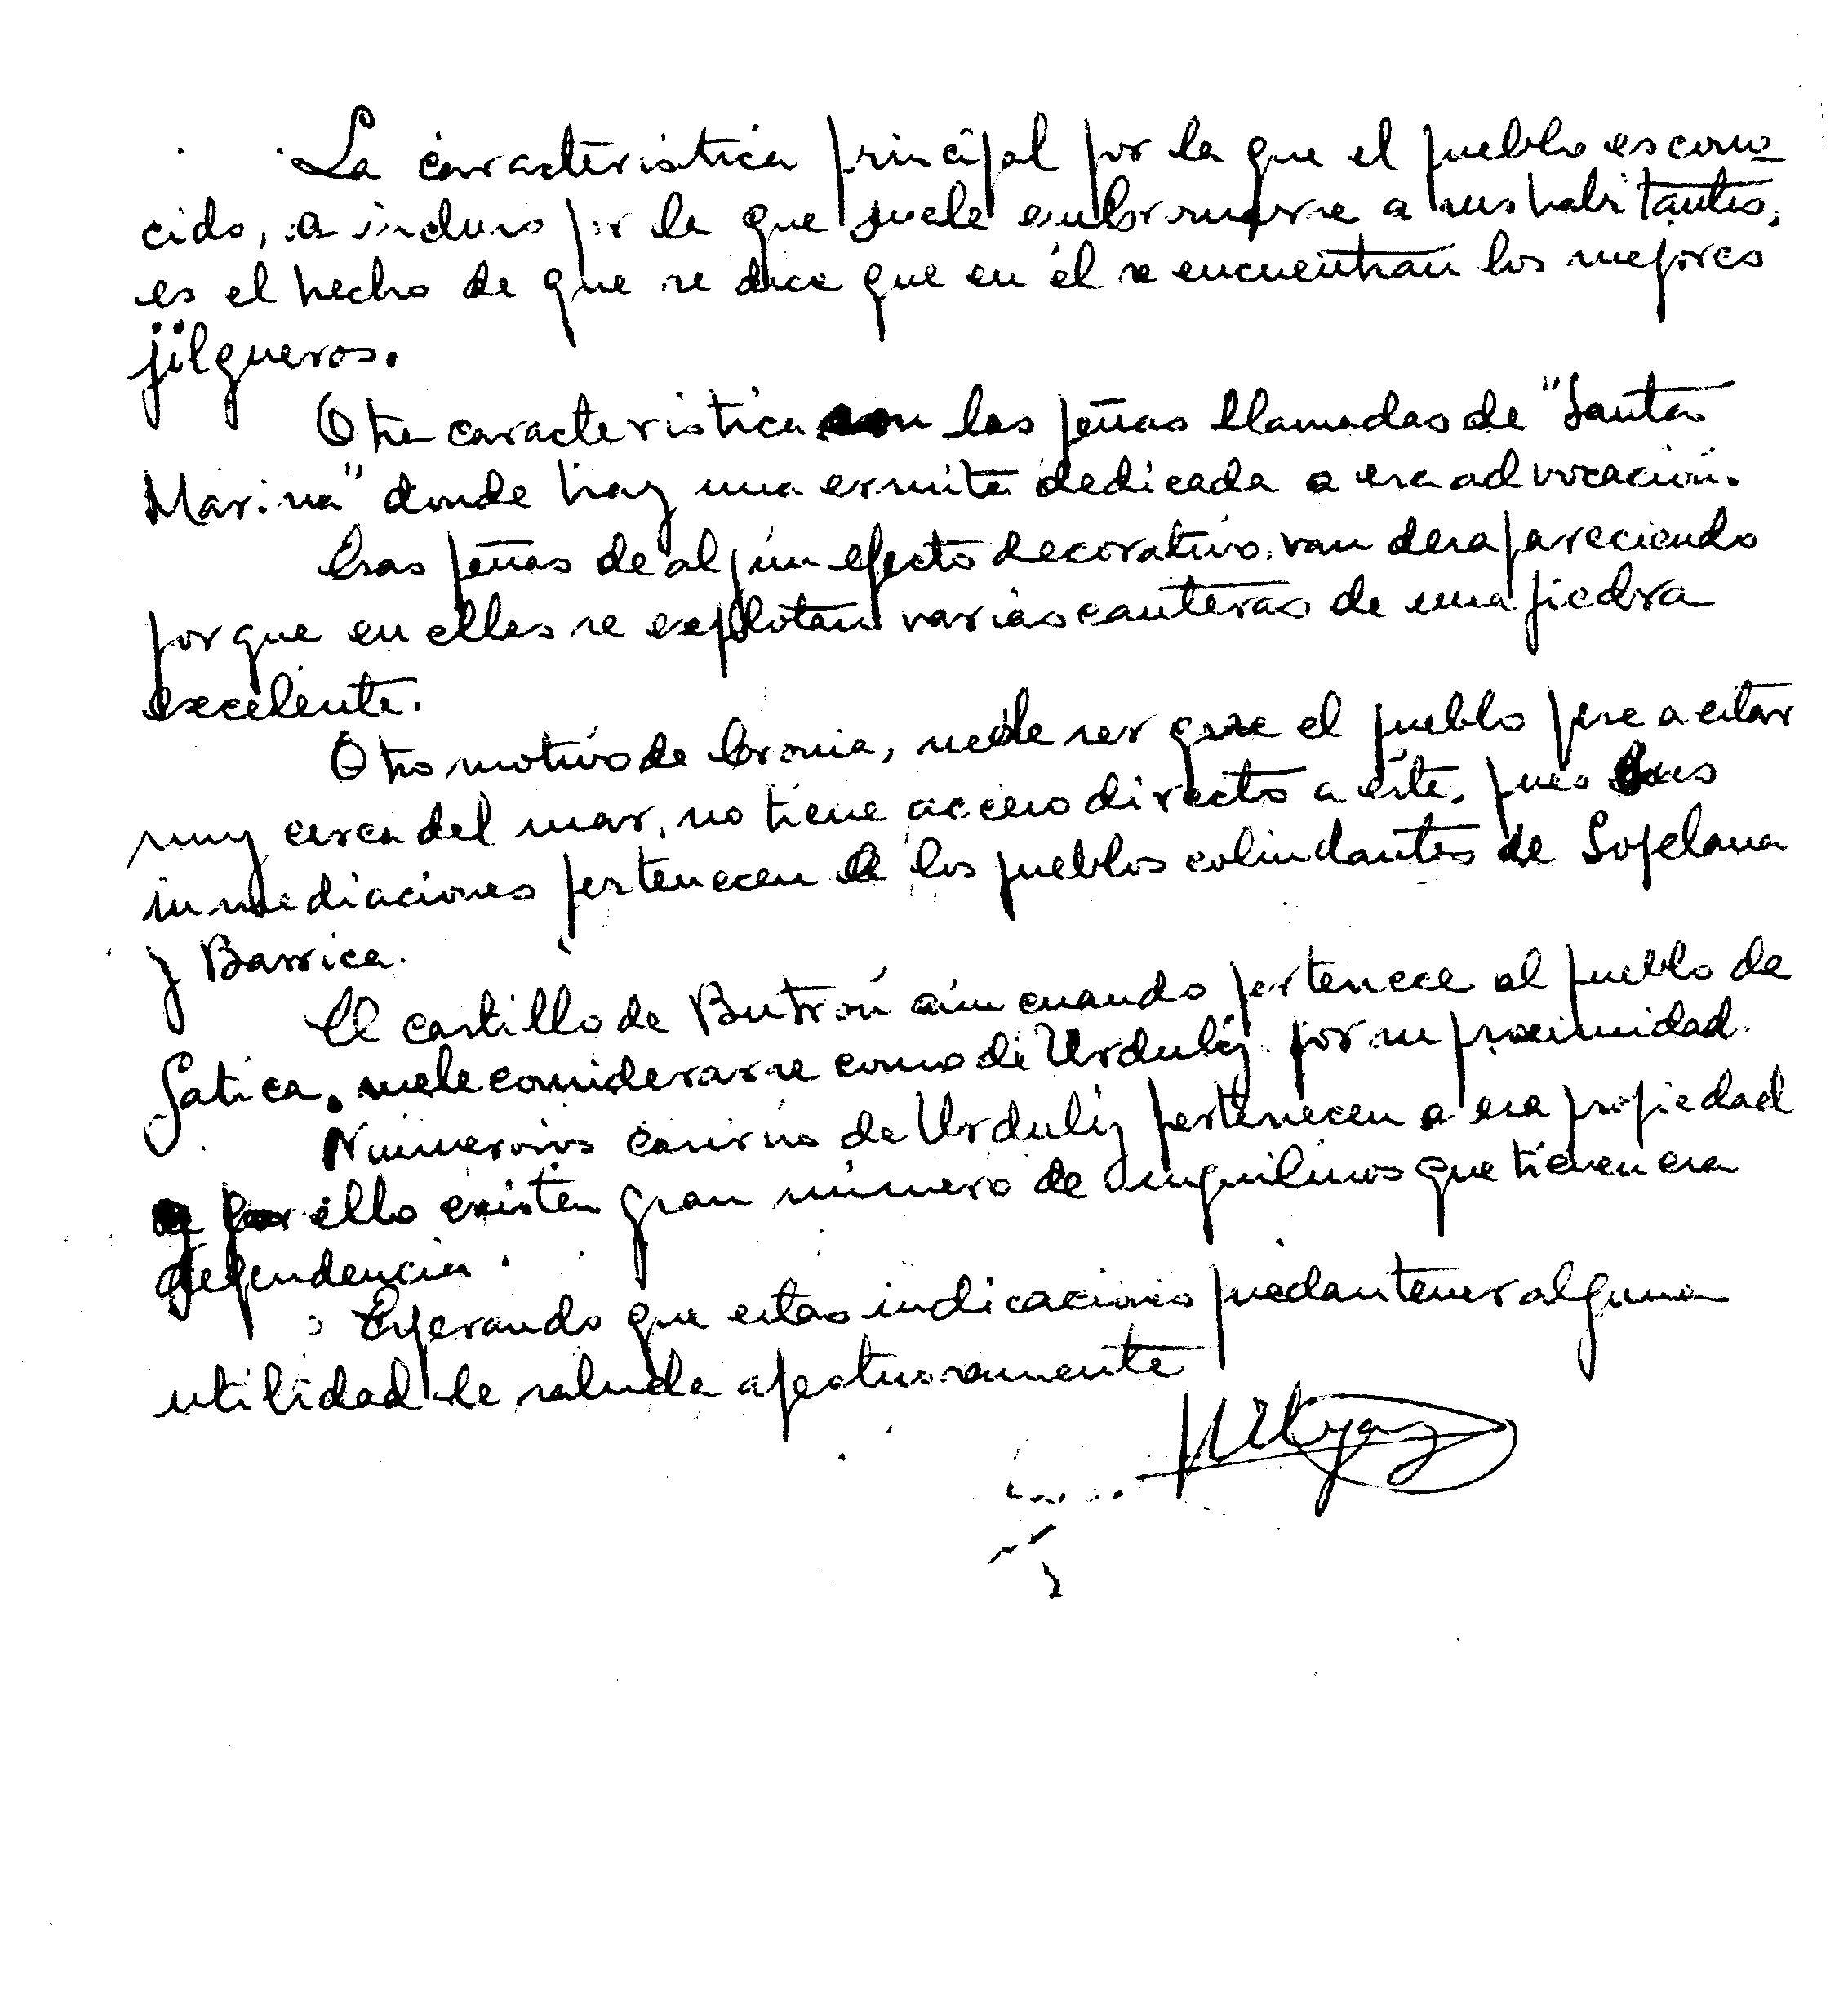 La caracteristica principal por la que el pueblo es cono-
cido, e incluso por la que suele embromarse a sus habitantes,
es el hecho de que se dice que en él se encuentran los mejores
jilgueros.
Otra caracteristica son las peñas llamadas de "Santa
Marina" donde hay una ermita dedicada a esa advocación.
Esas peñas de algún efecto decorativo, van desapareciendo
porque en ellas se explotan varias canteras de una piedra
excelente.
Otro motivo de broma, suele ser que el pueblo pese a estar
muy cerca del mar, no tiene acceso directo a éste, pues sus
inmediaciones pertenecen a los pueblos colindantes de Sopelana
y Barrica.
El castillo de Butrón aún cuando pertenece al pueblo de
Gatica, suele considerarse como de Urduliz por su proximidad.
Numerosos caserios de Urduliz pertenecen a esa propiedad
y por ello existen gran número de inquilinos que tienen esa
dependencia.
Esperando que estas indicaciones puedan tener alguna
utilidad le saluda afectuosamente